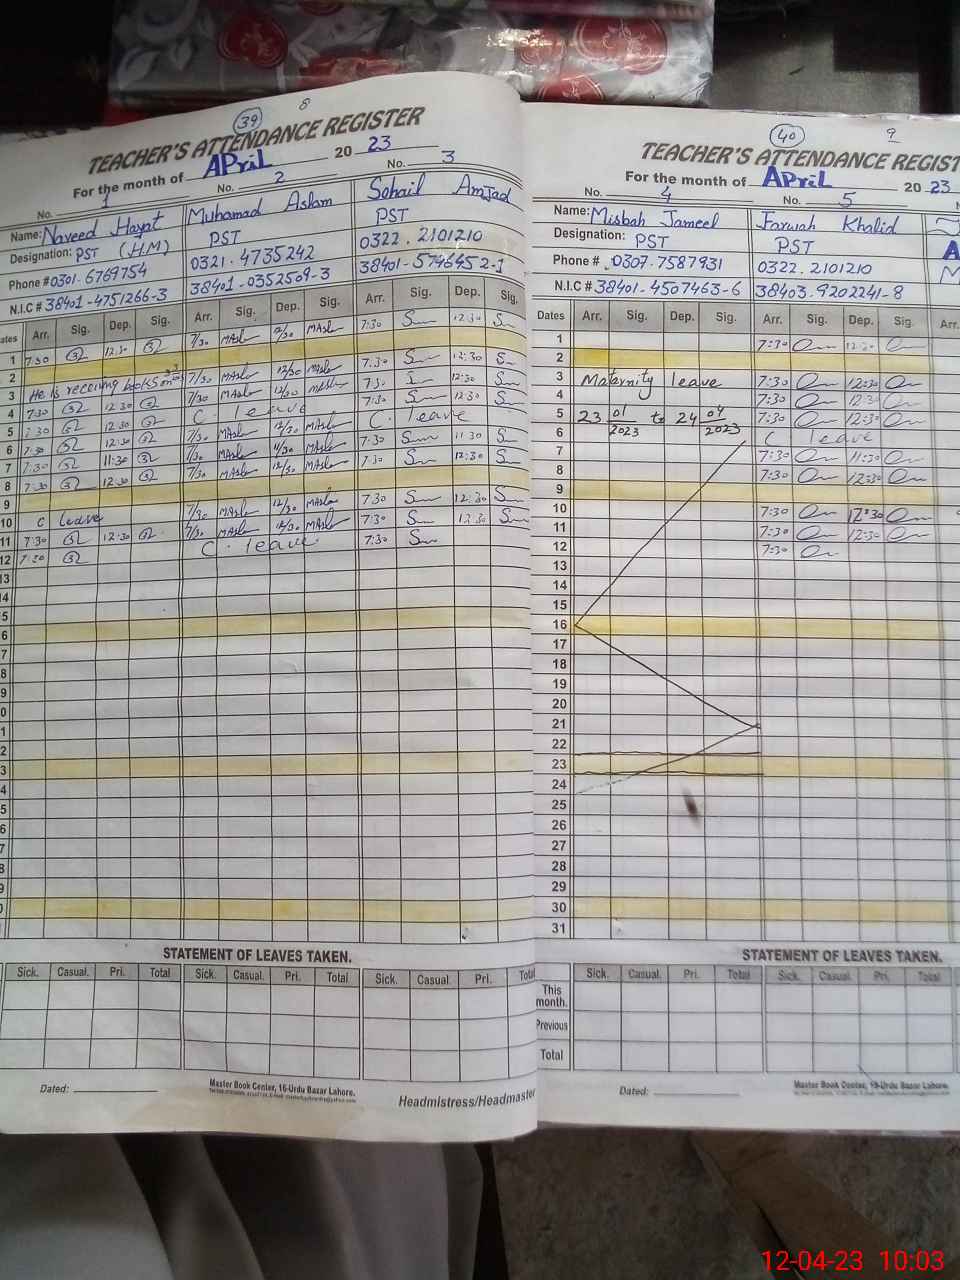 39
8
TEACHER'S ATTENDANCE REGISTER
For the month of APriL 20 23
No. 1 No. 2 No. 3
Name: Naveed Hayat Muhamad Aslam Sohail Amjad
Designation: PST (H.M) PST PST
Phone # 0301.6769754 0321.4735242 0322.2101210
N.I.C # 38401-4751266-3 38401-0352509-3 38401-5746452-1
ates Arr. Sig. Dep. Sig. Arr. Sig. Dep. Sig. Arr. Sig. Dep. Sig.
1 7:30 12:30 7/30 MAslm 12/30 MAslm 7:30 12:30
2
3 He is receving books 7/30 MAslm 12/30 MAslm 7:30 12:30
4 7:30 12:30 7/30 MAslm 12/30 MAslm 7:30 12:30
5 7:30 12:30 C. leave 7:30 12:30
6 7:30 12:30 7/30 MAslm 12/30 MAslm C. leave
7 7:30 11:30 7/30 MAslm 11/30 MAslm 7:30 11:30
8 7:30 12:30 7/30 MAslm 12/30 MAslm 7:30 12:30
9
10 C leave 7/30 MAslm 12/30 MAslm 7:30 12:30
11 7:30 12:30 7/30 MAslm 12/30 MAslm 7:30 12:30
12 7:30 C. leave 7:30
13
4
5
6
7
8
9
0
1
2
3
4
5
6
7
8
9
0
STATEMENT OF LEAVES TAKEN.
Sick. Casual. Pri. Total Sick. Casual. Pri. Total Sick. Casual. Pri. Total
Dated:
Master Book Center, 16-Urdu Bazar Lahore.
Headmistress/Headmaster
40
9
TEACHER'S ATTENDANCE REGIST
For the month of APriL 20 23
No. 4 No. 5 N
Name: Misbah Jameel Farwah Khalid
Designation: PST PST A
Phone # 0307.7587931 0322.2101210 M
N.I.C # 38401-4507463-6 38403.9202241-8
Dates Arr. Sig. Dep. Sig. Arr. Sig. Dep. Sig. Arr.
1 7:30 12:30
2
3 Maternity leave 7:30 12:30
4 7:30 12:30
5 23 01/2023 to 24 04/2023 7:30 12:30
6 C leave
7 7:30 11:30
8 7:30 12:30
9
10 7:30 12:30
11 7:30 12:30
12 7:30
13
14
15
16
17
18
19
20
21
22
23
24
25
26
27
28
29
30
31
STATEMENT OF LEAVES TAKEN.
Sick. Casual. Pri. Total Sick. Casual. Pri. Total
This month.
Previous
Total
Dated:
Master Book Center, 16-Urdu Bazar Lahore.
12-04-23 10:03